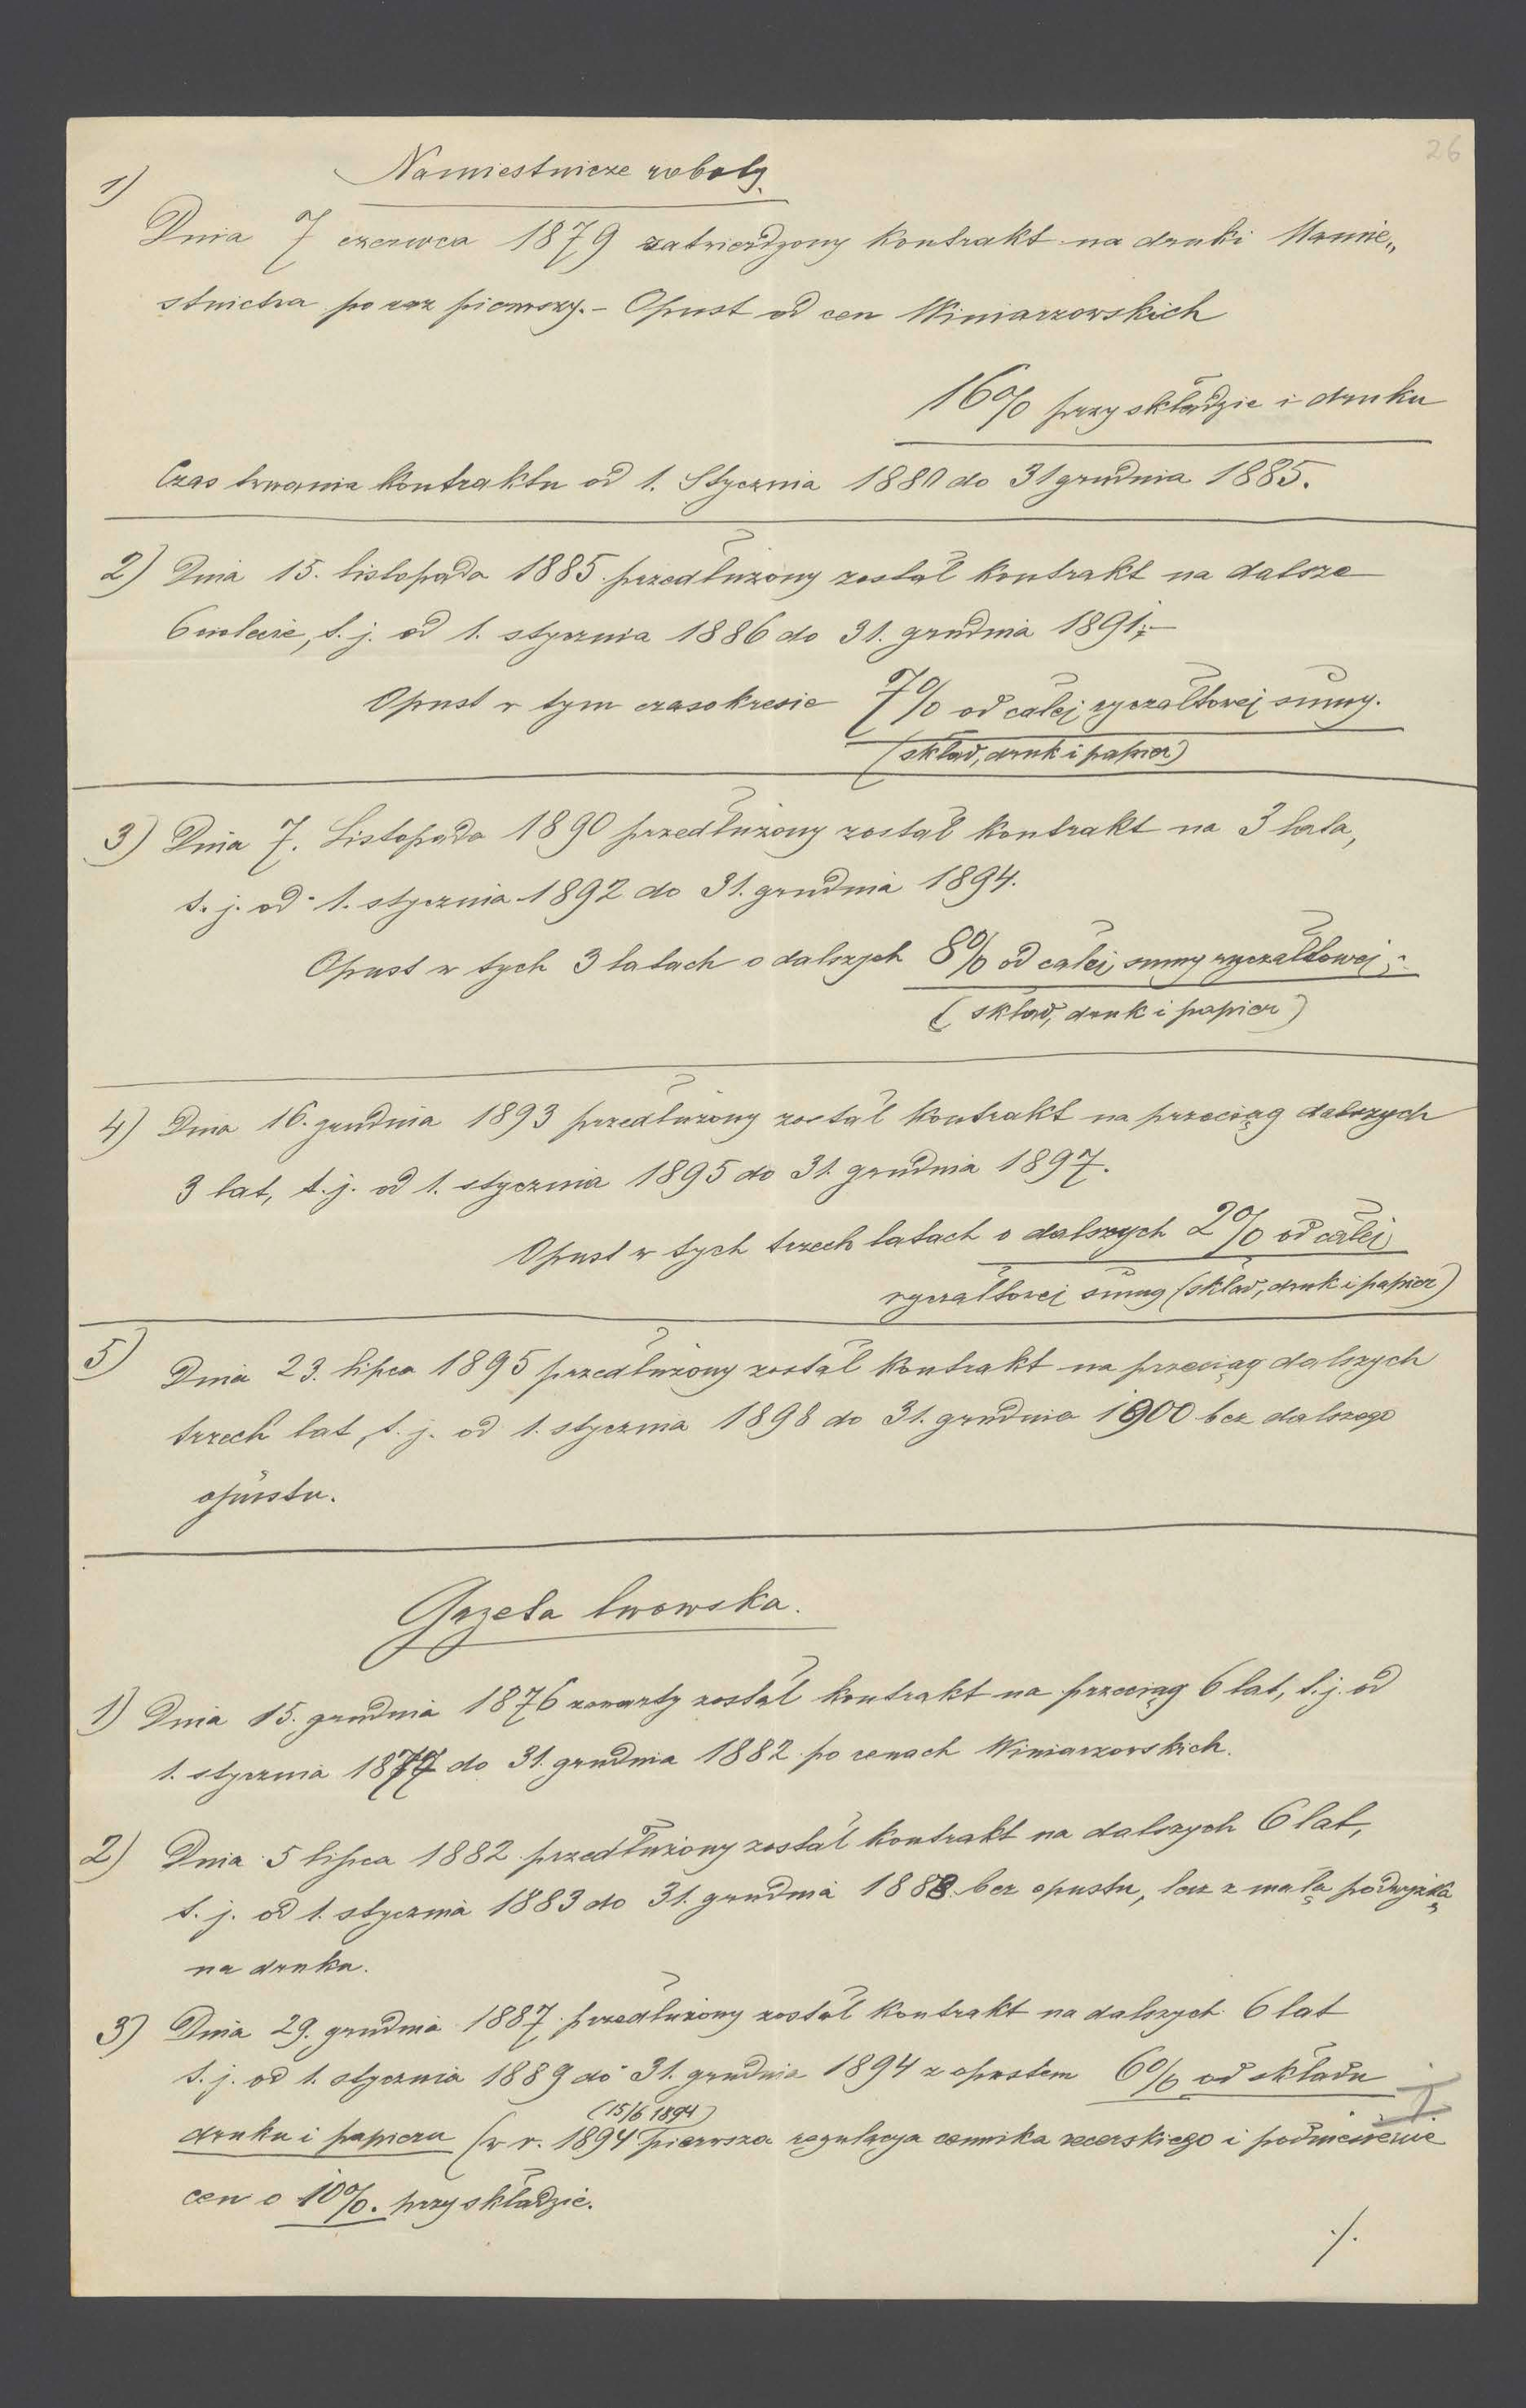 26
Namiestnicze roboty.
1)
Dnia 7 czerwca 1879 zatwierdzony kontrakt na druki Namie„
stnictwa po raz pierwszy. - Opust od cen Winiarzowskich
16% przy składzie i druku
Czas trwania kontraktu od 1. Stycznia 1880 do 31 grudnia 1885.
2) Dnia 15. listopada 1885 przedłużony został kontrakt na dalsze
6ciolecie, t. j. od 1. stycznia 1886 do 31. grudnia 1891.-
Opust w tym czasokresie 7% od całej ryczałtowej sumy.
(skład, druk i papier)
3) Dnia 7. Listopada 1890 przedłużony został kontrakt na 3 lata,
t. j. od 1. stycznia 1892 do 31. grudnia 1894.
Opust w tych 3 latach o dalszych 8% od całej sumy ryczałtowej.
(skład, druk i papier)
4) Dnia 16. grudnia 1893 przedłużony został kontrakt na przeciąg dalszych
3 lat, t. j. od 1. stycznia 1895 do 31. grudnia 1897.
Opust w tych trzech latach o dalszych 2% od całej
ryczałtowej sumy (skład, druk i papier)
5)
Dnia 23. lipca 1895 przedłużony został kontrakt na przeciąg dalszych
trzech lat, t. j. od 1. stycznia 1898 do 31. grudnia 1900 bez dalszego
opustu.
Gazeta lwowska.
1) Dnia 15. grudnia 1876 zawarty został kontrakt na przeciąg 6 lat, t. j. od
1. stycznia 1877 do 31. grudnia 1882 po cenach Winiarzowskich.
2) Dnia 5 lipca 1882 przedłużony został kontrakt na dalszych 6 lat,
t. j. od 1. stycznia 1883 do 31. grudnia 1888 bez opustu, lecz z małą podwyżką
na druku.
3) Dnia 29. grudnia 1887 przedłużony został kontrakt na dalszych 6 lat
t. j. od 1. stycznia 1889 do 31. grudnia 1894 z opustem 6% od składu
(15/6 1894)
druku i papieru (w r. 1894 pierwsza regulacya cennika zecerskiego i podniesienie
cen o 10%. przy składzie.
./.